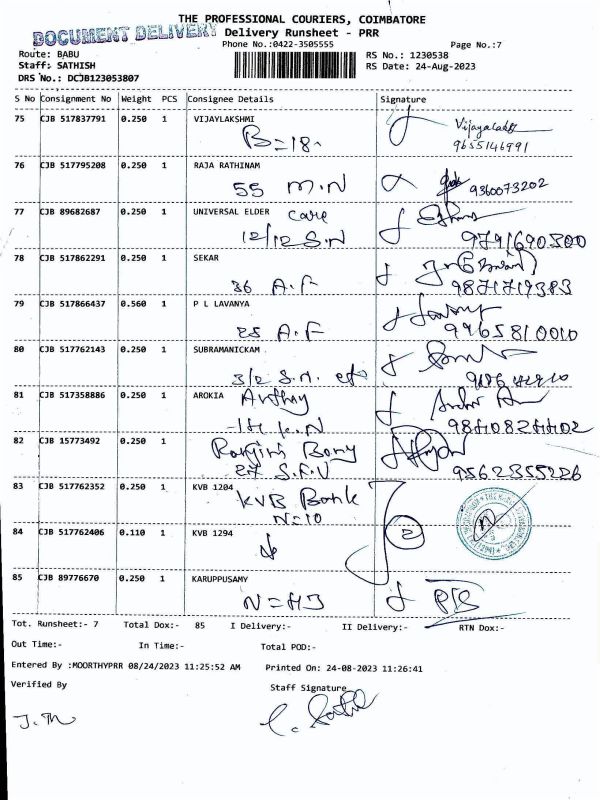 THE PROFESSIONAL COURIERS, COIMBATORE
DOCUMENT DELIVERY
Delivery Runsheet - PRR
Phone No.:0422-3505555
Page No.:7
Route: BABU
RS No.: 1230538
Staff: SATHISH
RS Date: 24-Aug-2023
DRS No.: DCJB123053807
S No Consignment No Weight PCS Consignee Details Signature
75 CJB 517837791 0.250 1 VIJAYLAKSHMI
B=18. Vijayalaksh
9655146991
76 CJB 517795208 0.250 1 RAJA RATHINAM
55 M.N 9360073202
77 CJB 89682687 0.250 1 UNIVERSAL ELDER care
12/12 S.N 9791690300
78 CJB 517862291 0.250 1 SEKAR
36 A.F 9871719383
79 CJB 517866437 0.560 1 P L LAVANYA
25 A.F 9965810010
80 CJB 517762143 0.250 1 SUBRAMANICKAM
3/2 S.N.
81 CJB 517358886 0.250 1 AROKIA Anthny
K.N
82 CJB 15773492 0.250 1 Ranjins Bony
27 S.F.V 9562355226
83 CJB 517762352 0.250 1 KVB 1204
KVB Bank
N=10
84 CJB 517762406 0.110 1 KVB 1294
2
85 CJB 89776670 0.250 1 KARUPPUSAMY
Tot. Runsheet:- 7 Total Dox:- 85 I Delivery:- II Delivery:- RTN Dox:-
Out Time:- In Time:- Total POD:-
Entered By :MOORTHYPRR 08/24/2023 11:25:52 AM Printed On: 24-08-2023 11:26:41
Verified By Staff Signature